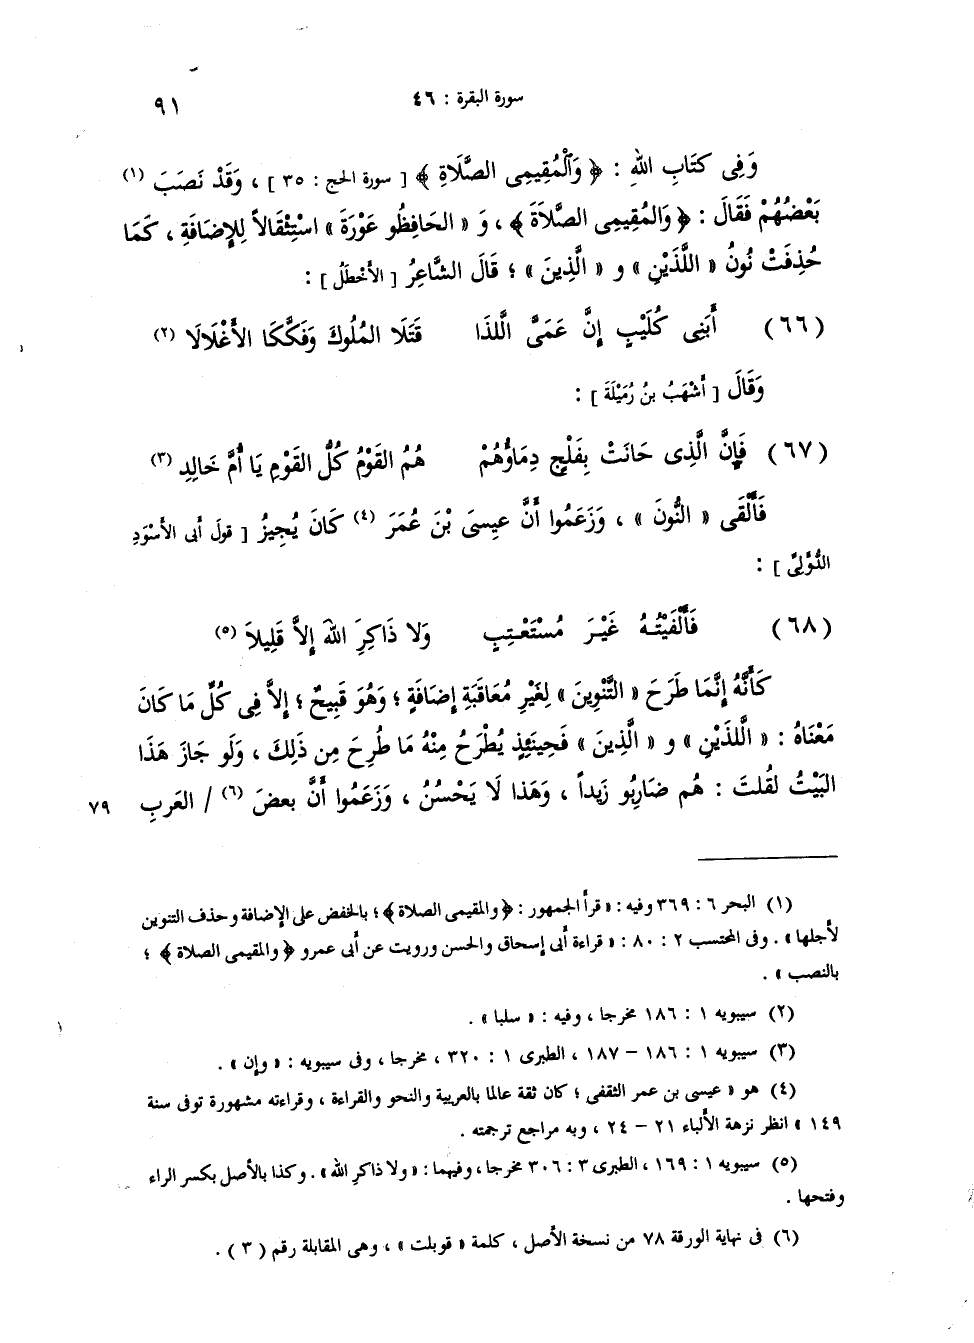 سورة البقرة : ٤٦
٩١
وَفِى كتَابِ اللهِ : ﴿ وَٱلْمُقِيمِى الصَّلَاةِ ﴾ [ سورة الحج : ٣٥ ] ، وَقَدْ نَصَبَ (١)
بَعْضُهُمْ فَقَالَ : ﴿ وَالمُقِيمِى الصَّلَاةَ ﴾ ، وَ « الحَافِظُو عَوْرَةَ » اسْتِثْقَالاً لِلإِضَافَةِ ، كَمَا
حُذِفَتْ نُونُ « اللَّذَيْنِ » و « الَّذِينَ » ؛ قَالَ الشَّاعِرُ [ الأَخْطَلُ ] :
(٦٦) أَبَنِى كُلَيْبٍ إِنَّ عَمَىَّ الَّلذَا قَتَلَا المُلُوكَ وَفَكَّكَا الأَغْلَالَا (٢)
وَقَالَ [ أَشْهَبُ بنُ رُمَيْلَةَ ] :
(٦٧) فَإِنَّ الَّذِى حَانَتْ بِفَلْجٍ دِمَاؤُهُمْ هُمُ القَوْمُ كُلُّ القَوْمِ يَا أُمَّ خَالِدِ (٣)
فَأَلْقَى « النُّونَ » ، وَزَعَمُوا أَنَّ عِيسَى بْنَ عُمَرَ (٤) كَانَ يُجِيزُ [ قولَ أبى الأسْوَدِ
الدُّؤَلِىَّ ] :
(٦٨) فَأَلْفَيْتُـهُ غَيْـرَ مُسْتَعْـتِبٍ وَلا ذَاكِرَِ اللهَ إِلاَّ قَلِيلاَ (٥)
كَأَنَّهُ إِنَّمَا طَرَحَ « التَّنْوِينَ » لِغَيْرِ مُعَاقَبَةِ إِضَافَةٍ ؛ وَهُوَ قَبِيحٌ ؛ إِلاَّ فِى كُلِّ مَا كَانَ
مَعْنَاهُ : « الَّلذَيْنِ » و « الَّذِينَ » فَحِينَئِذٍ يُطْرَحُ مِنْهُ مَا طُرِحَ مِن ذَلِكَ ، وَلَو جَازَ هَذَا
البَيْتُ لقُلتَ : هُم ضَارِبُو زَيداً ، وَهَذا لَا يَحْسُنُ ، وَزَعَمُوا أَنَّ بعضَ (٦) / العَربِ ٧٩
(١) البحر ٦ : ٣٦٩ وفيه : « قرأ الجمهور : ﴿ والمقيمى الصلاة ﴾ ؛ بالخفض على الإضافة وحذف التنوين
لأجلها » . وفى المحتسب ٢ : ٨٠ : « قراءة أبى إسحاق والحسن ورويت عن أبى عمرو ﴿ والمقيمى الصلاة ﴾ ؛
بالنصب » .
(٢) سيبويه ١ : ١٨٦ مخرجا ، وفيه : « سلبا » .
(٣) سيبويه ١ : ١٨٦ – ١٨٧ ، الطبرى ١ : ٣٢٠ ، مخرجا ، وفى سيبويه : « وإن » .
(٤) هو « عيسى بن عمر الثقفى ؛ كان ثقة عالما بالعربية والنحو والقراءة ، وقراءته مشهورة توفى سنة
١٤٩ » انظر نزهة الألباء ٢١ – ٢٤ ، وبه مراجع ترجمته .
(٥) سيبويه ١ : ١٦٩ ، الطبرى ٣ : ٣٠٦ مخرجا ، وفيهما : « ولا ذاكرِ الله » . وكذا بالأصل بكسر الراء
وفتحها .
(٦) فى نهاية الورقة ٧٨ من نسخة الأصل ، كلمة « قوبلت » ، وهى المقابلة رقم ( ٣ ) .